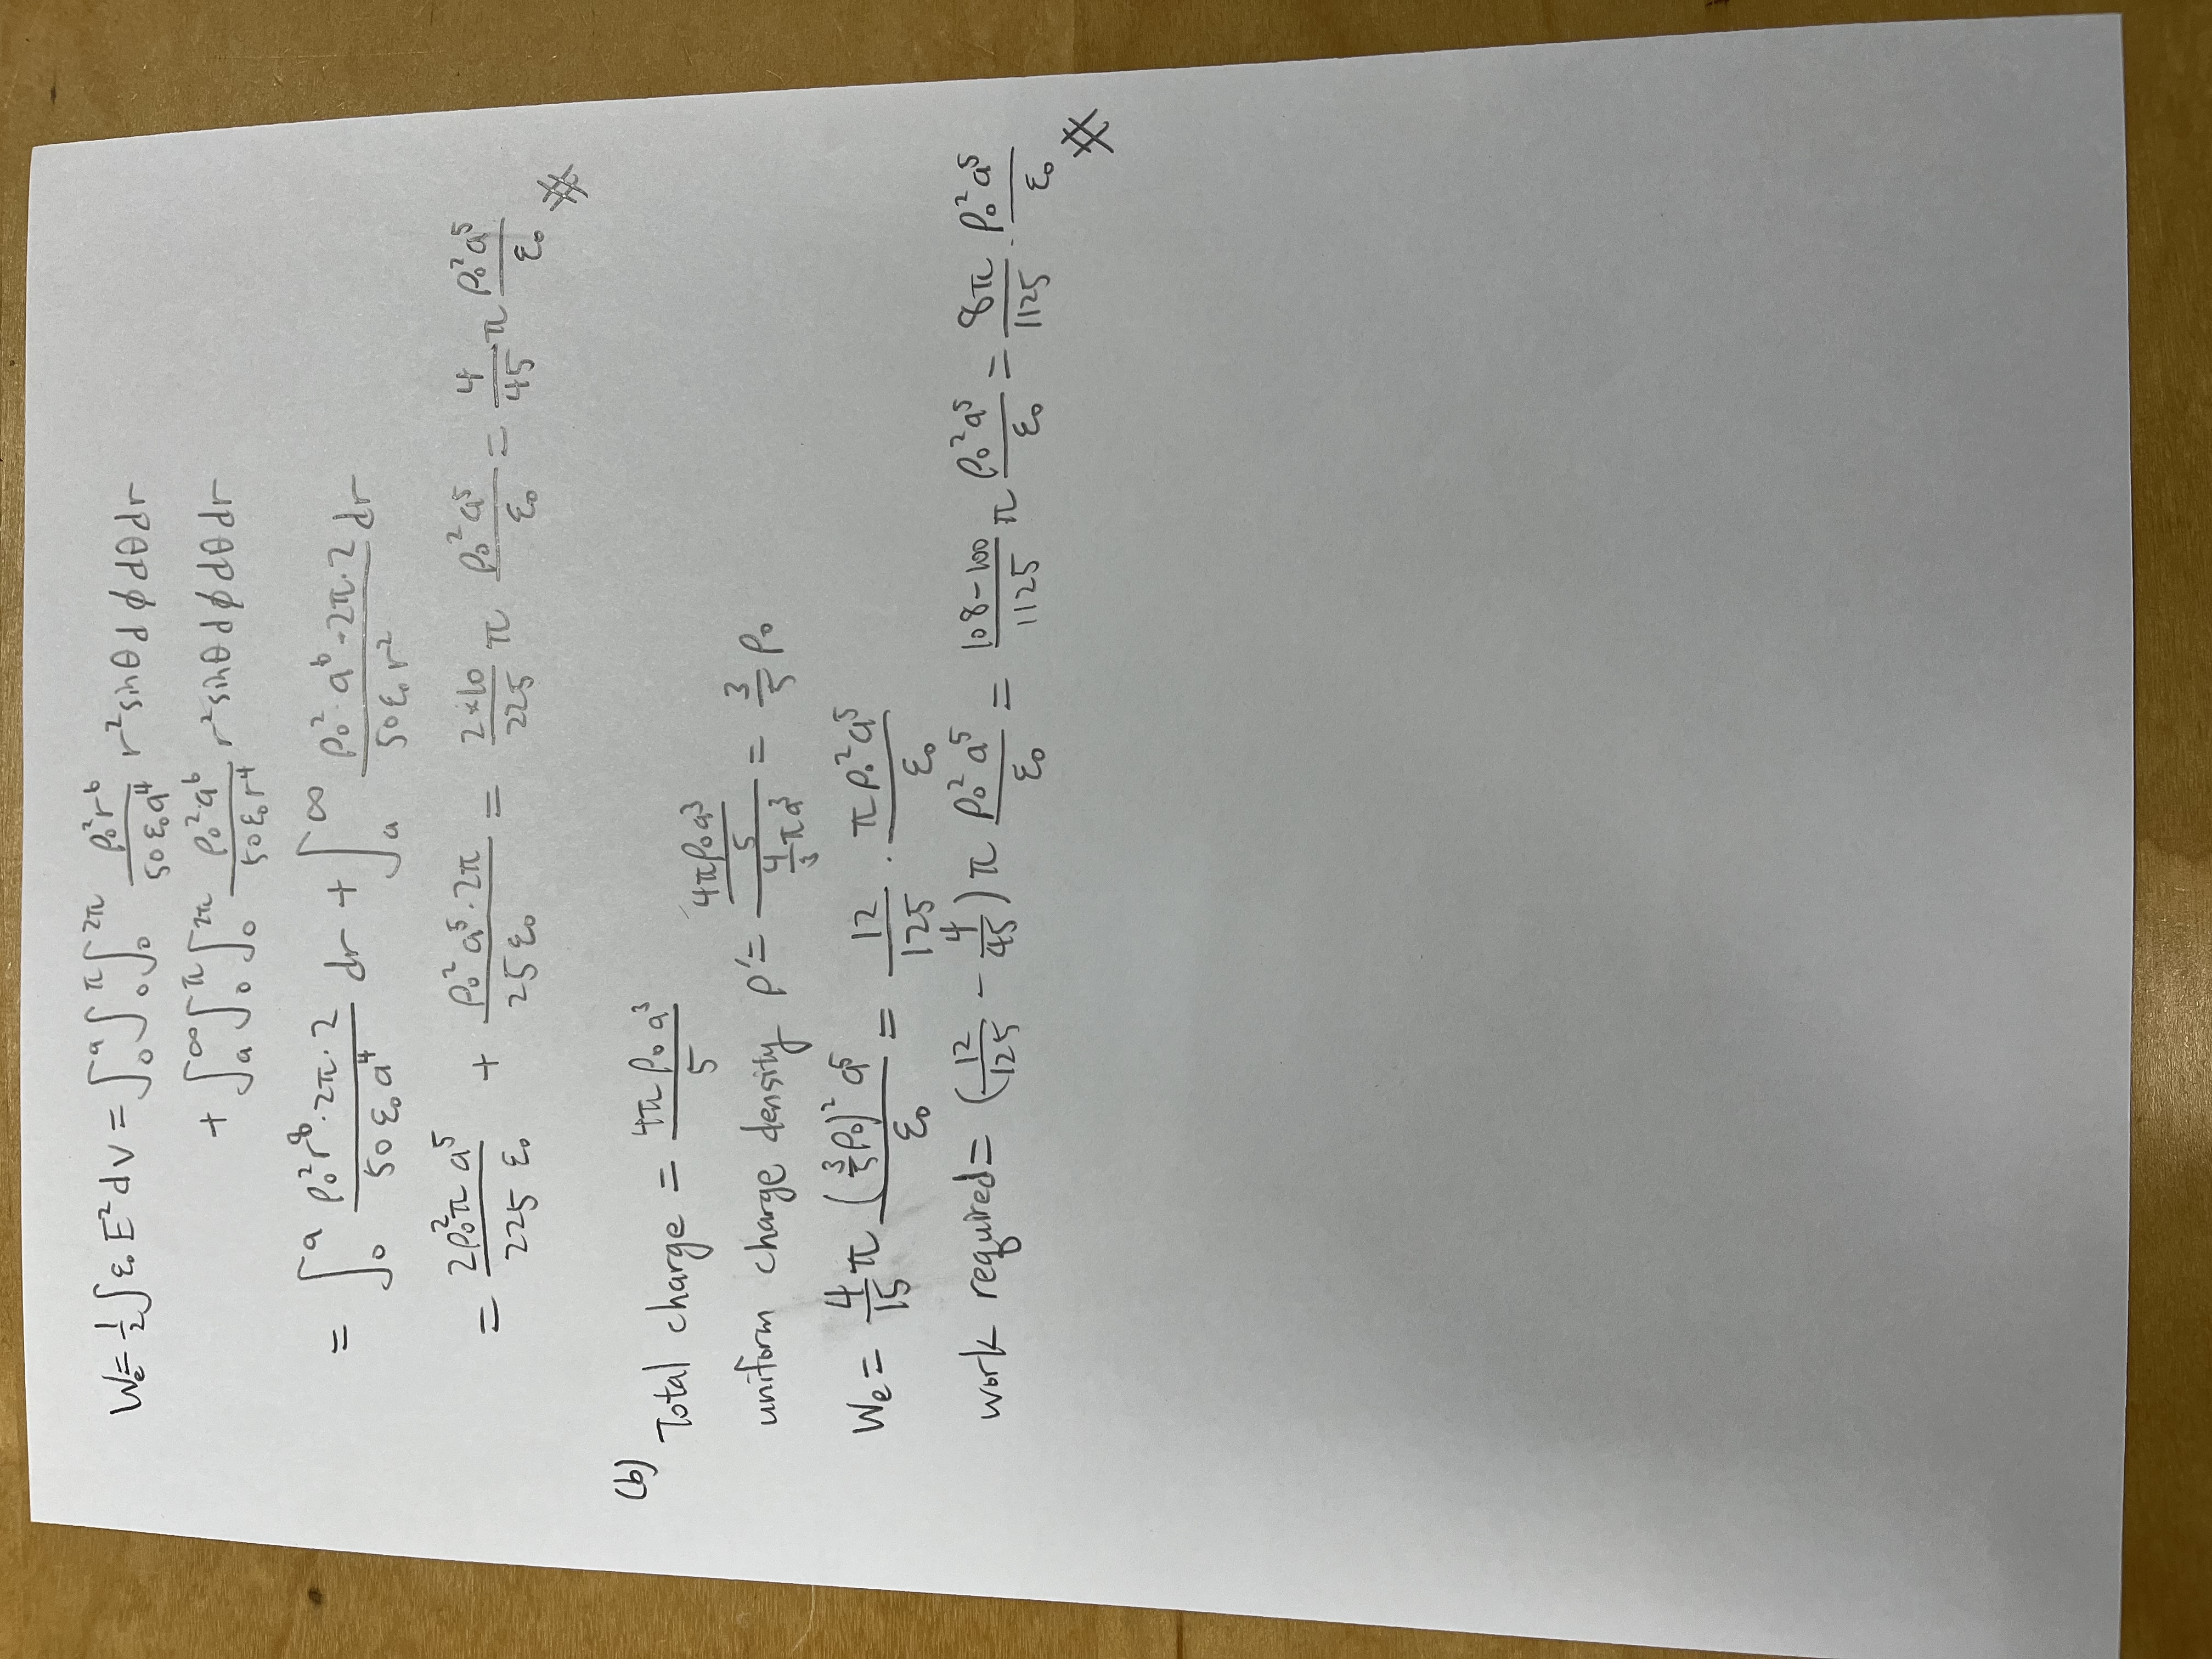 We = 1/2 ∫ ε₀ E² dv = ∫₀^a ∫₀^π ∫₀^2π ρ₀² r⁶ / 50 ε₀ a⁴ r² sinθ dϕ dθ dr
+ ∫ₐ^∞ ∫₀^π ∫₀^2π ρ₀² a⁶ / 50 ε₀ r⁴ r² sinθ dϕ dθ dr
= ∫₀^a ρ₀² r⁸ · 2π · 2 / 50 ε₀ a⁴ dr + ∫ₐ^∞ ρ₀² · a⁶ · 2π · 2 / 50 ε₀ r² dr
= 2ρ₀² π a⁵ / 225 ε₀ + ρ₀² a⁵ · 2π / 25 ε₀ = 2×10 / 225 π ρ₀² a⁵ / ε₀ = 4/45 π ρ₀² a⁵ / ε₀ #
(b)
Total charge = 4π ρ₀ a³ / 5
uniform charge density ρ' = (4πρ₀a³ / 5) / (4/3 πa³) = 3/5 ρ₀
We = 4/15 π (3/5 ρ₀)² a⁵ / ε₀ = 12/125 · πρ₀² a⁵ / ε₀
work required = (12/125 − 4/45) π ρ₀² a⁵ / ε₀ = 108−100 / 1125 π ρ₀² a⁵ / ε₀ = 8π / 1125 · ρ₀² a⁵ / ε₀ #